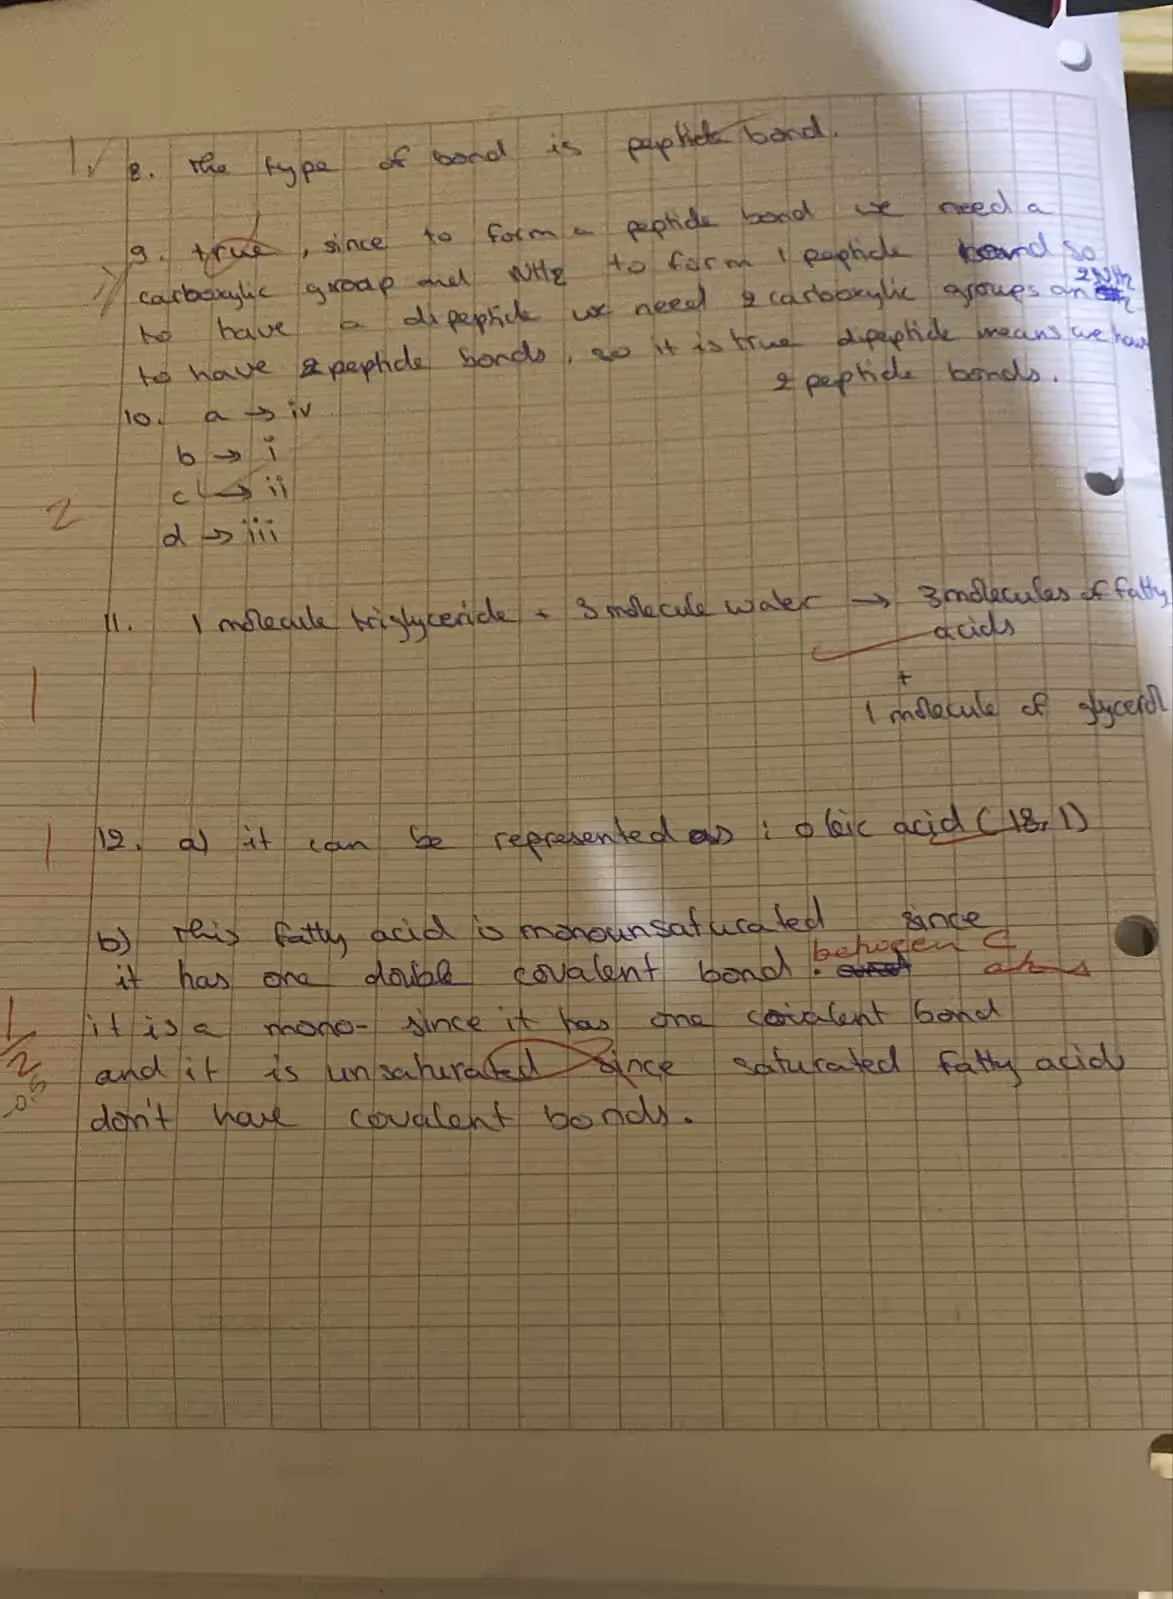 1. 8. The type of bond is peptide bond.
9. true, since to form a peptide bond we need a
carboxylic group and NH2 to form 1 peptide bond so
to have a dipeptide we need 2 carboxylic groups an 2 NH2
to have 2 peptide bonds, so it is true dipeptide means we have
2 peptide bonds.
10. a → iv
b → i
c → ii
2
d → iii
11. 1 molecule triglyceride + 3 molecule water → 3 molecules of fatty
acids
+
1
1 molecule of glycerol
1 12. a) it can be represented as : oleic acid (18, 1)
b) This fatty acid is monounsaturated since
it has one double covalent bond. between C
atoms
it is a mono- since it has one covalent bond
1/2
and it is unsaturated since saturated fatty acid
-0.5
don't have covalent bonds.